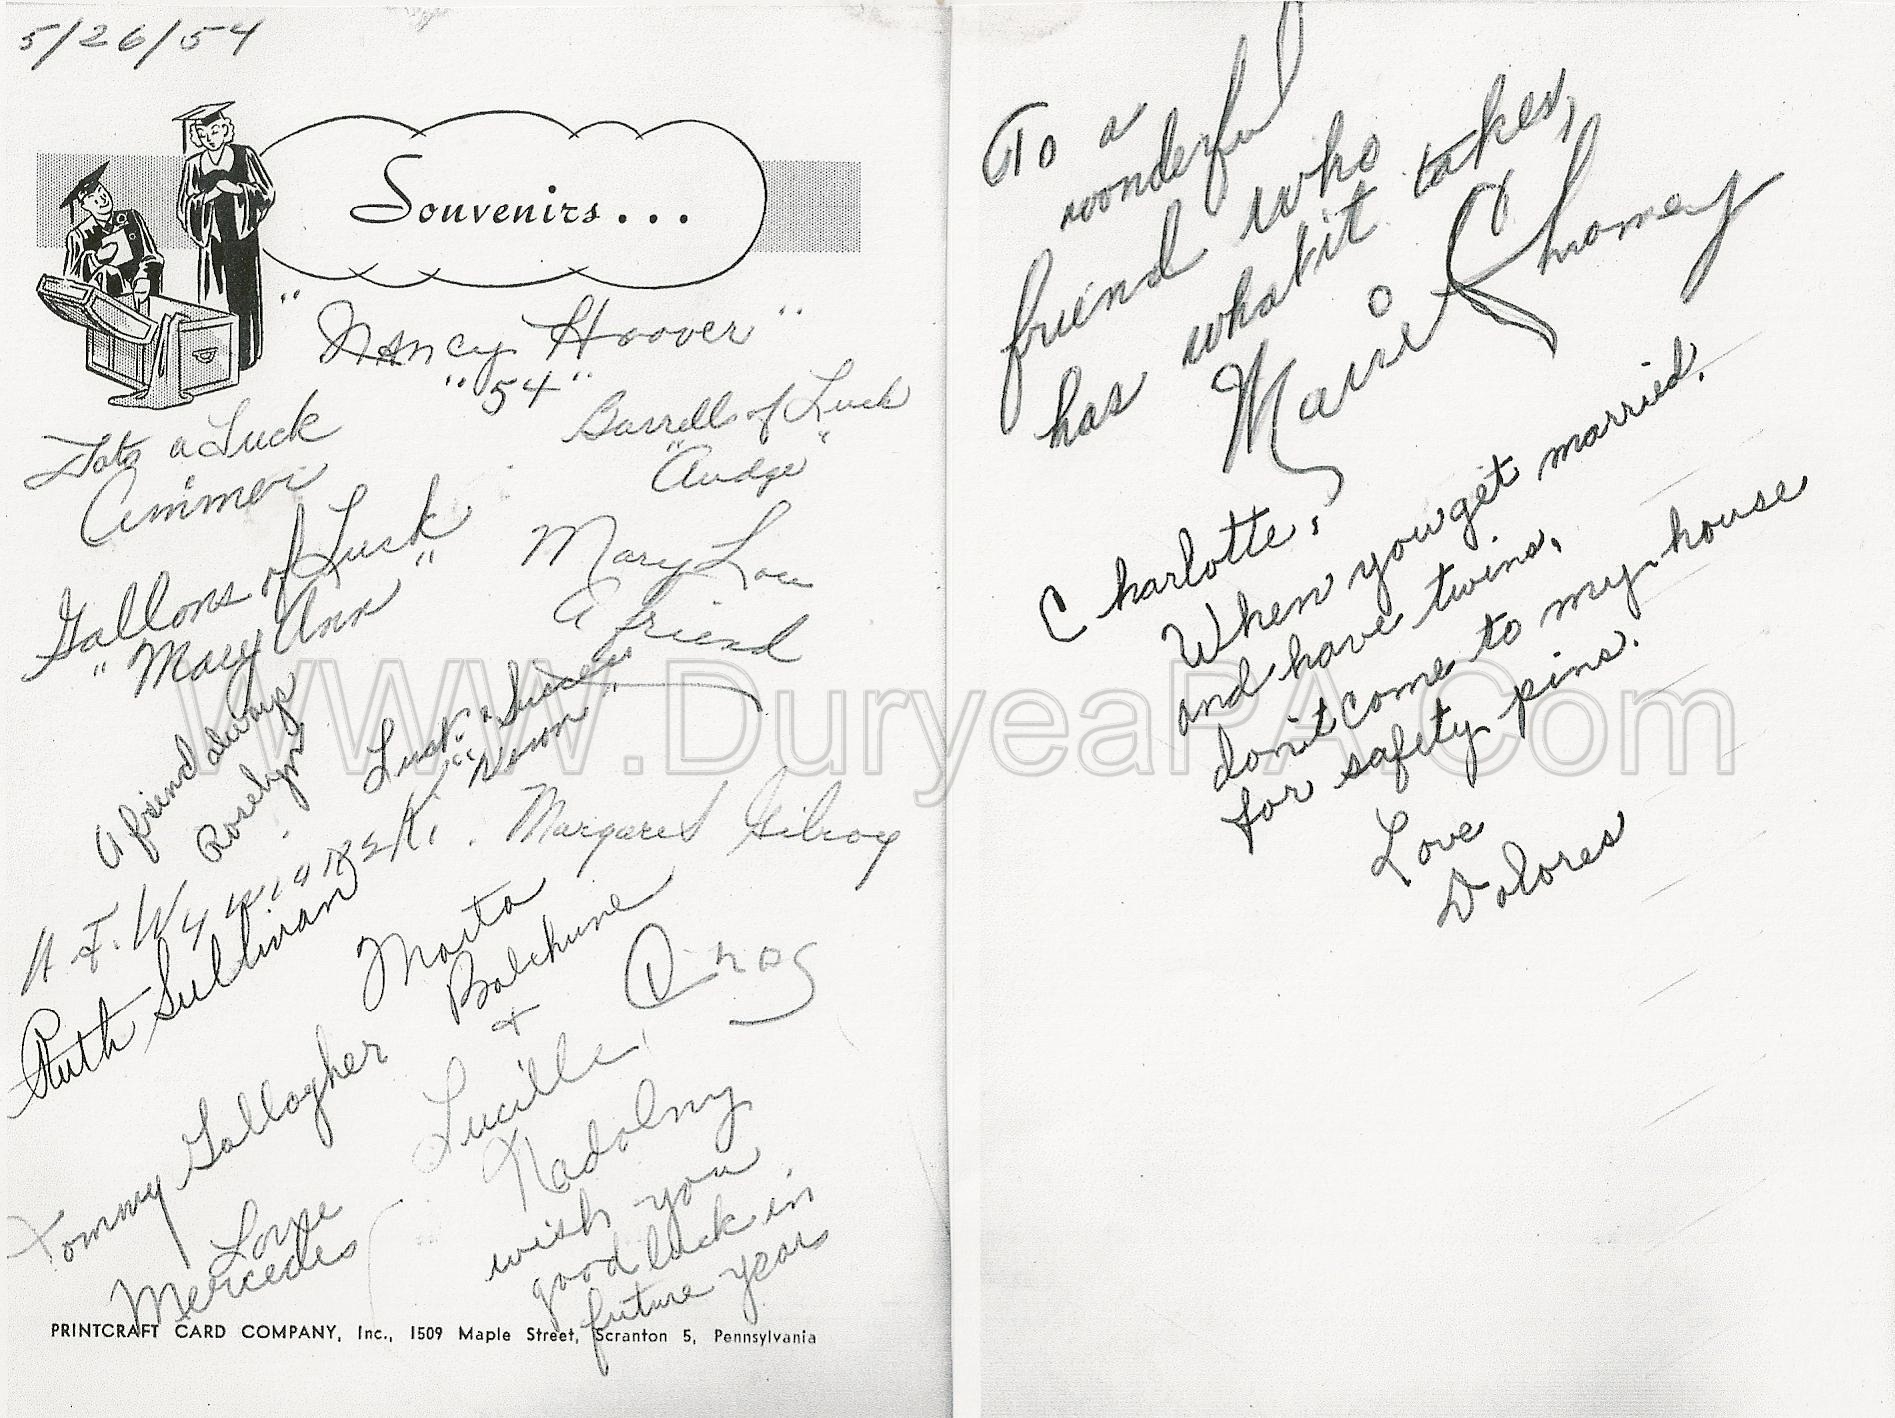 5/26/54
Souvenirs...
"Nancy Hoover"
"54"
Lots a Luck
Barrells of Luck
"Audge"
Gallons of Luck
"Mary Ann"
Mary Lou
A friend
A friend always
Roselyn
Luck &
Margaret Gilroy
Ruth Sullivan
Marta
Balchune
+
Lucille
Nadolny
wish you
good luck in
future years
Tommy Gallagher
Love
Mercedes
PRINTCRAFT CARD COMPANY, Inc., 1509 Maple Street, Scranton 5, Pennsylvania
To a
wonderful
friend who
has what it takes,
Marie Chomey
Charlotte,
When you get married,
and have twins,
don't come to my house
for safety pins.
Love
Dolores
WWW.DuryeaPA.Com